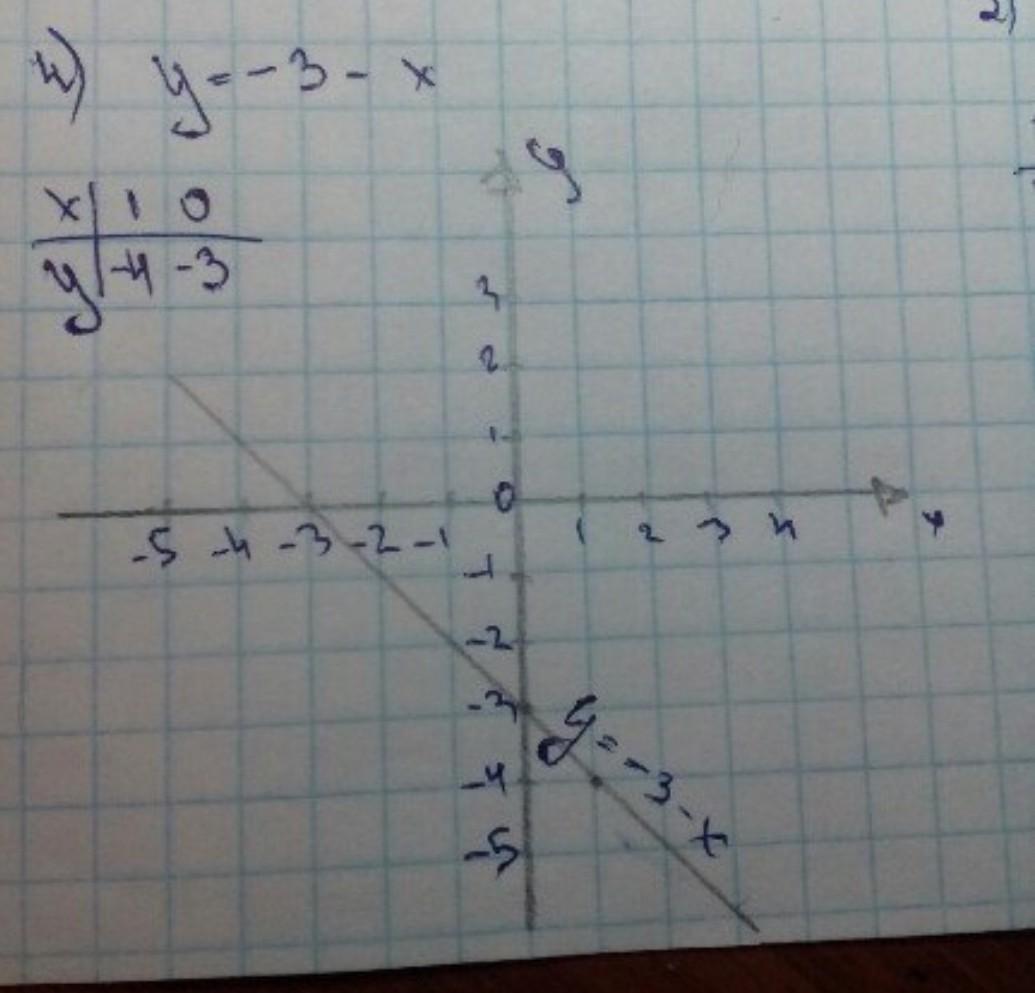 4) y = -3 - x
x | 1 0
y | -4 -3
y
3
2
1
0
-5 -4 -3 -2 -1 1 2 3 4 x
-1
-2
-3
-4
-5
y = -3 - x
2)